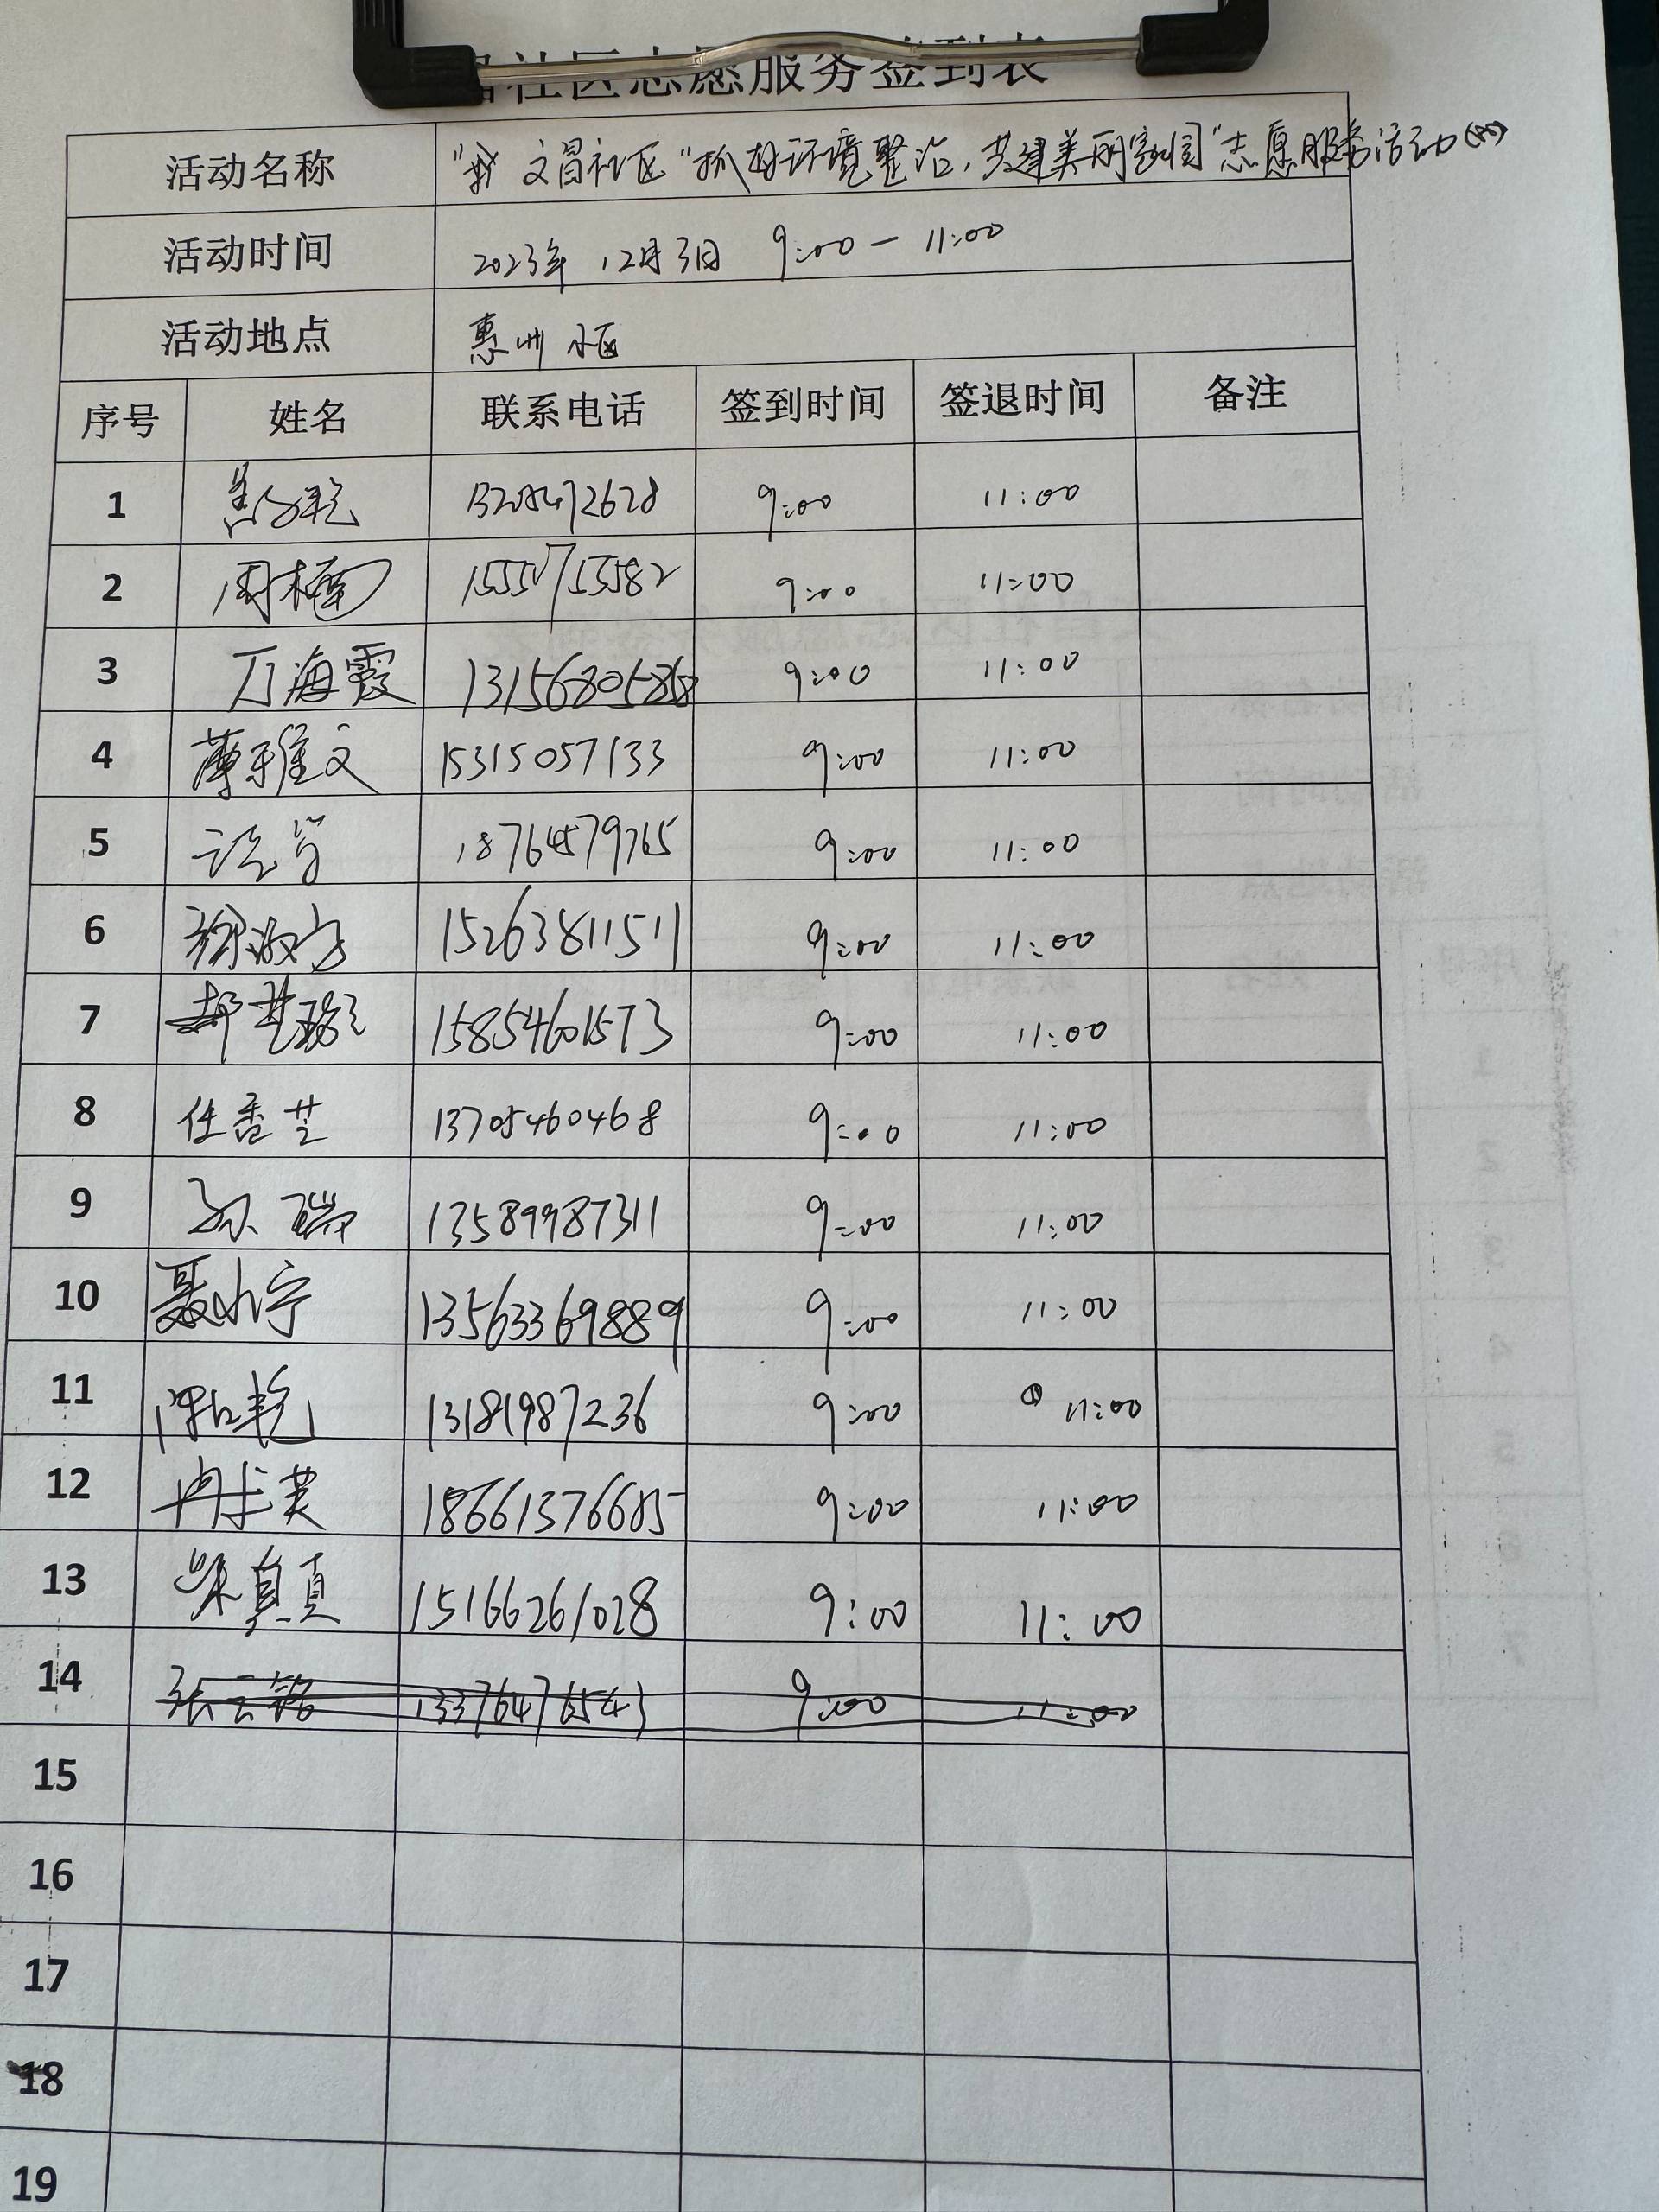 社区志愿服务签到表
活动名称 文昌社区"抓好环境整治,共建美丽家园"志愿服务活动
活动时间 2023年 12月3日 9:00 — 11:00
活动地点 惠州小区
序号 姓名 联系电话 签到时间 签退时间 备注
1 9:00 11:00
2 周楠 9:00 11:00
3 万海霞 9:00 11:00
4 薄雅文 15315057133 9:00 11:00
5 18764579765 9:00 11:00
6 15263811511 9:00 11:00
7 15854601573 9:00 11:00
8 任香芝 13705460468 9:00 11:00
9 孙瑞 13589987311 9:00 11:00
10 聂小宁 13563369889 9:00 11:00
11 13181987236 9:00 11:00
12 18661376685 9:00 11:00
13 柴真真 15166261028 9:00 11:00
14 张云铭 13376476543 9:00 11:00
15
16
17
18
19